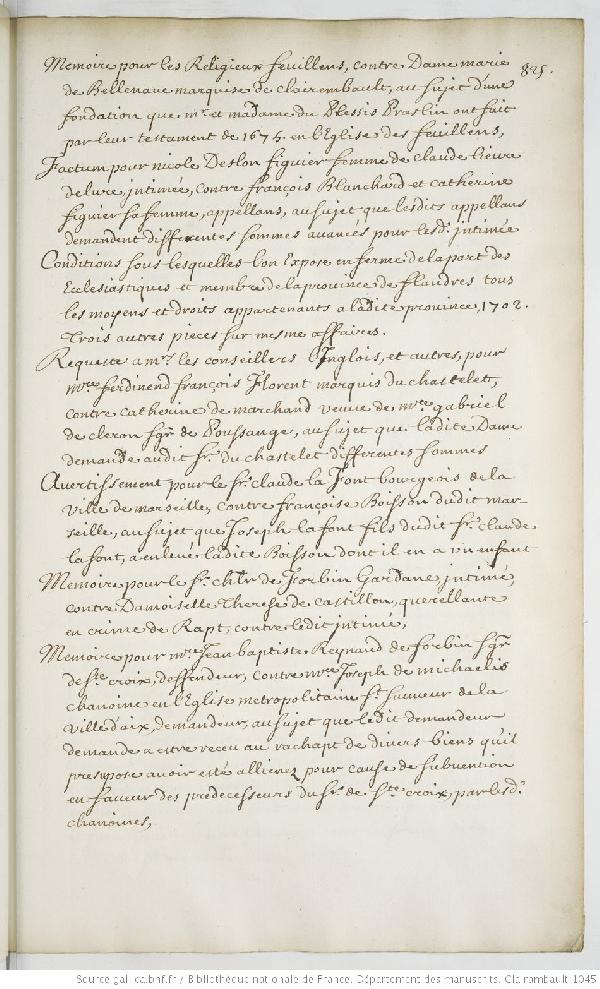 825.
Memoire pour les Religieux feuillens, contre Dame marie
de Bellenave marquise de clairembault, au sujet d'une
fondation que mr. et madame du Plessis Praslin ont fait
par leur testament de 1675. en l'Eglise des feuillens,
Factum pour nicole Deslon figuier femme de claude
de lure, intimée, contre françois Blanchard et catherine
figuier sa femme, appellans, au sujet que lesdits appellans
demandent differentes sommes avancés pour lesd. intimée
Conditions sous lesquelles l'on Expose en ferme de la part des
Ecclesiastiques et membre de la province de flandres tous
les moyens et droits appartenants a ladite province, 1702.
Trois autres pieces sur mesme affaires.
Requeste a mrs. les conseillers l'Inglois, et autres, pour
mre. ferdinend françois Florent marquis du chastelet,
contre catherine de marchand veuve de mre. gabriel
de cleron sgr. de Poussange, au sujet que ladite Dame
demande audit sr. du chastelet differentes sommes
Avertissement pour le sr. claude la Font bourgeois de la
ville de marseille, contre françoise Boisson dudit mar-
seille, au sujet que Joseph la font fils dudit sr. claude
la font, a enlevé ladite Boisson dont il en a un enfant
Memoire pour le sr. chlr de Forbin Gardane, intimé,
contre Damoiselle Therese de castillon, querellante
en crime de Rapt, contre ledit intimé,
Memoire pour mre. Jean baptiste Reynaud de forbin sgr.
de ste. croix, deffendeur, contre mre. Joseph de michaelis
chanoine en l'Eglise metropolitaine st. sauveur de la
ville d'aix, demandeur, au sujet que ledit demandeur
demande a estre receu au rachapt de divers biens qu'il
presupose avoir esté allienez pour cause de subvention
en faveur des predecesseurs du sr. de ste. croix, par lesd.
chanoines,
Source gallica.bnf.fr / Bibliothèque nationale de France. Département des manuscrits. Clairambault 1045